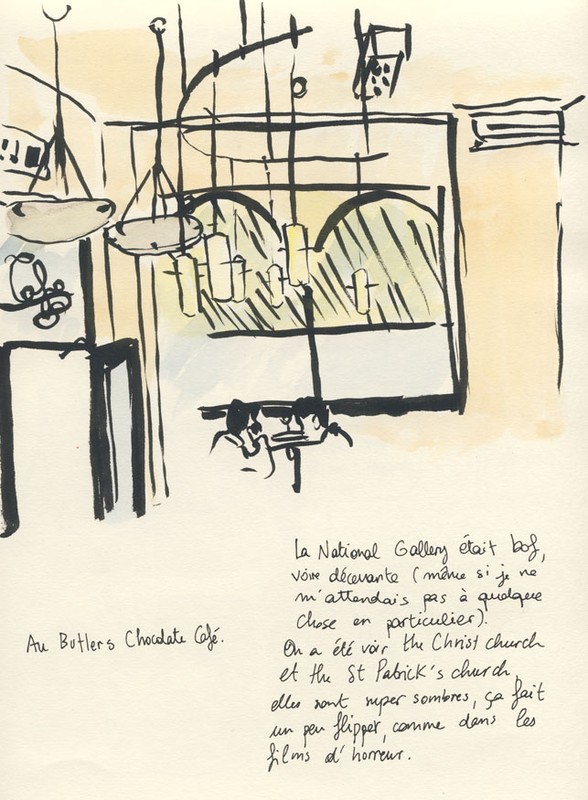 Café
Au Butlers Chocolate Café.
La National Gallery était bof,
voire décevante (même si je ne
m'attendais pas à quelque
chose en particulier).
On a été voir the Christ church
et the St Patrick's church,
elles sont super sombres, ça fait
un peu flipper, comme dans les
films d'horreur.